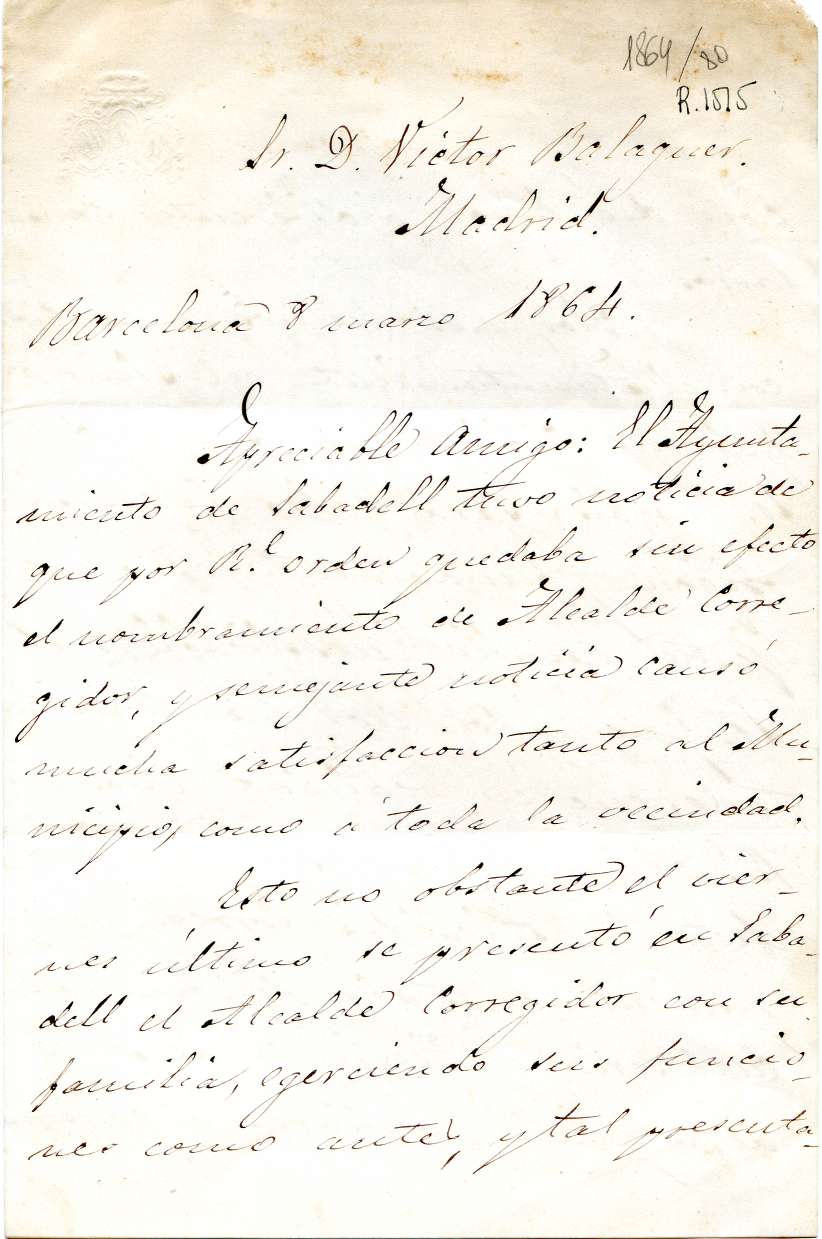 1864/80
R.1515
Sr. D. Victor Balaguer.
Madrid.
Barcelona 8 marzo 1864.
Apreciable amigo: El Ayunta-
miento de Sabadell tuvo noticia de
que por Rl. orden quedaba sin efecto
el nombramiento de Alcalde Corre-
gidor, y semejante noticia causó
mucha satisfaccion tanto al Mu-
nicipio, como á toda la vecindad.
Esto no obstante el vier-
nes último se presentó en Saba-
dell el Alcalde Corregidor con su
familia, egerciendo sus funcio-
nes como antes, y tal presenta-